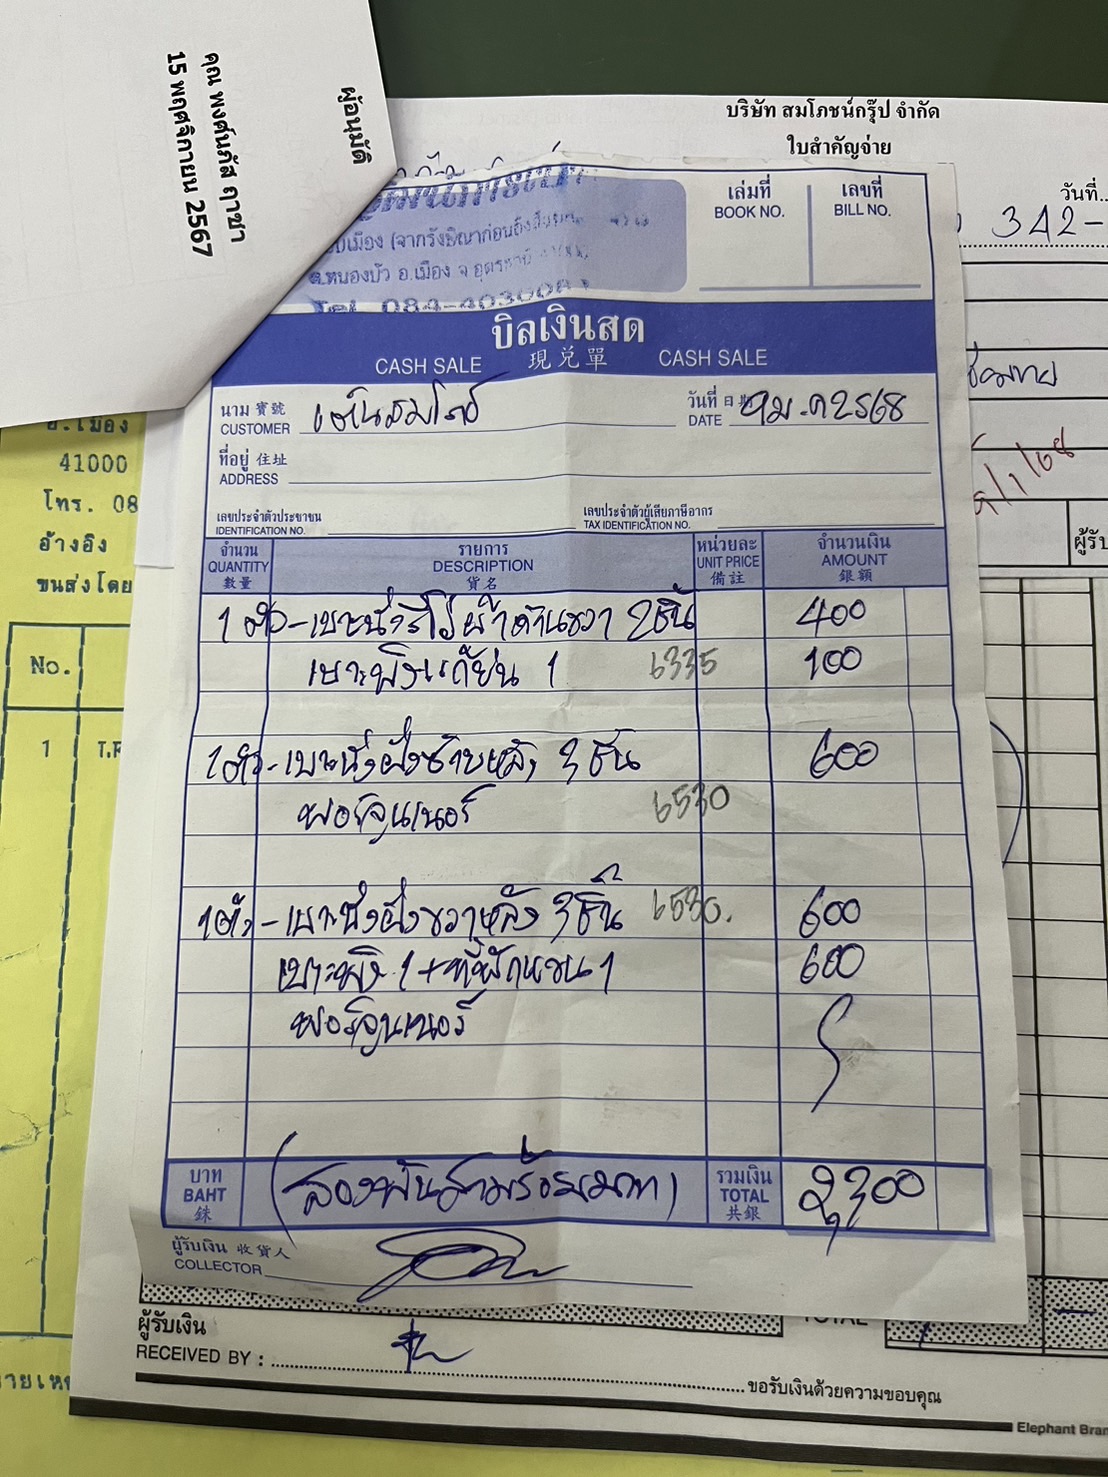 ผู้อนุมัติ
คุณ พงศ์นภัส ฤาชา
15 พฤศจิกายน 2567
บริษัท สมโภชน์กรุ๊ป จำกัด
ใบสำคัญจ่าย
วันที่..
342-
เล่มที่
BOOK NO.
เลขที่
BILL NO.
ต.หนองบัว อ.เมือง จ.อุดรธานี
Tel. 084-403008
บิลเงินสด
CASH SALE 現兑單 CASH SALE
นาม 寳號
CUSTOMER เต็นสมโภชน์
วันที่ 日期
DATE 9 ม.ค 2568
ที่อยู่ 住址
ADDRESS
เลขประจำตัวประชาชน
IDENTIFICATION NO.
เลขประจำตัวผู้เสียภาษีอากร
TAX IDENTIFICATION NO.
จำนวน
QUANTITY
數量
รายการ
DESCRIPTION
貨名
หน่วยละ
UNIT PRICE
備註
จำนวนเงิน
AMOUNT
銀額
1 ตัว - เบาะนั่ง ด้านขวา 2 ชิ้น 400
เบาะพิงแก้ย่น 1 6335 100
1 ตัว - เบาะนั่งฝั่งซ้ายหลัง 3 ชิ้น 600
ฟอร์จูนเนอร์ 6530
1 ตัว - เบาะนั่งฝั่งขวาหลัง 3 ชิ้น 6530. 600
เบาะพิง 1 + ที่พักแขน 1 600
ฟอร์จูนเนอร์
บาท
BAHT
銖
(สองพันสามร้อยบาท)
รวมเงิน
TOTAL
共銀
2,300
ผู้รับเงิน 收貨人
COLLECTOR
ผู้รับเงิน
RECEIVED BY :
TOTAL
ขอรับเงินด้วยความขอบคุณ
Elephant Bran
อ.เมือง
41000
โทร. 08
อ้างอิง
ขนส่งโดย
No.
1
ผู้รับ
9/1/68